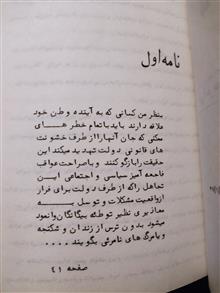 نامه اول
بنظر من کسانی که به آینده وطن خود
علاقه دارند باید با تمام خطر های
ممکنی که جان آنها را از طرف خشونت
های قانونی دولت تهدید میکند این
حقیقت را بازگو کنند و با صراحت عواقب
فاجعه آمیز سیاسی و اجتماعی این
تجاهل را که از طرف دولت برای فرار
از واقعیت مشکلات و توسل به
معاذیری نظیر توطئه بیگانگان وانمود
میشود بدون ترس از زندان و شکنجه
و یا مرگ های نامرئی بگویند ....
صفحه ٤١